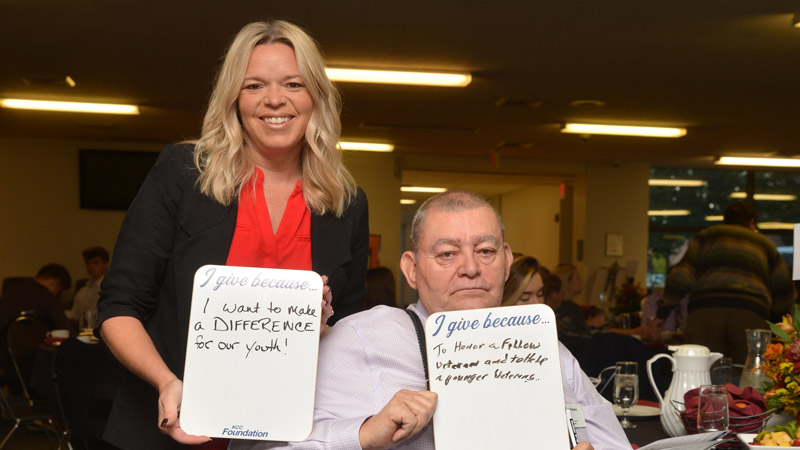 I give because...
I want to make
a DIFFERENCE
for our youth!
KCC
Foundation
I give because...
To Honor a Fellow
Veteran and to Help
a younger Veterans..